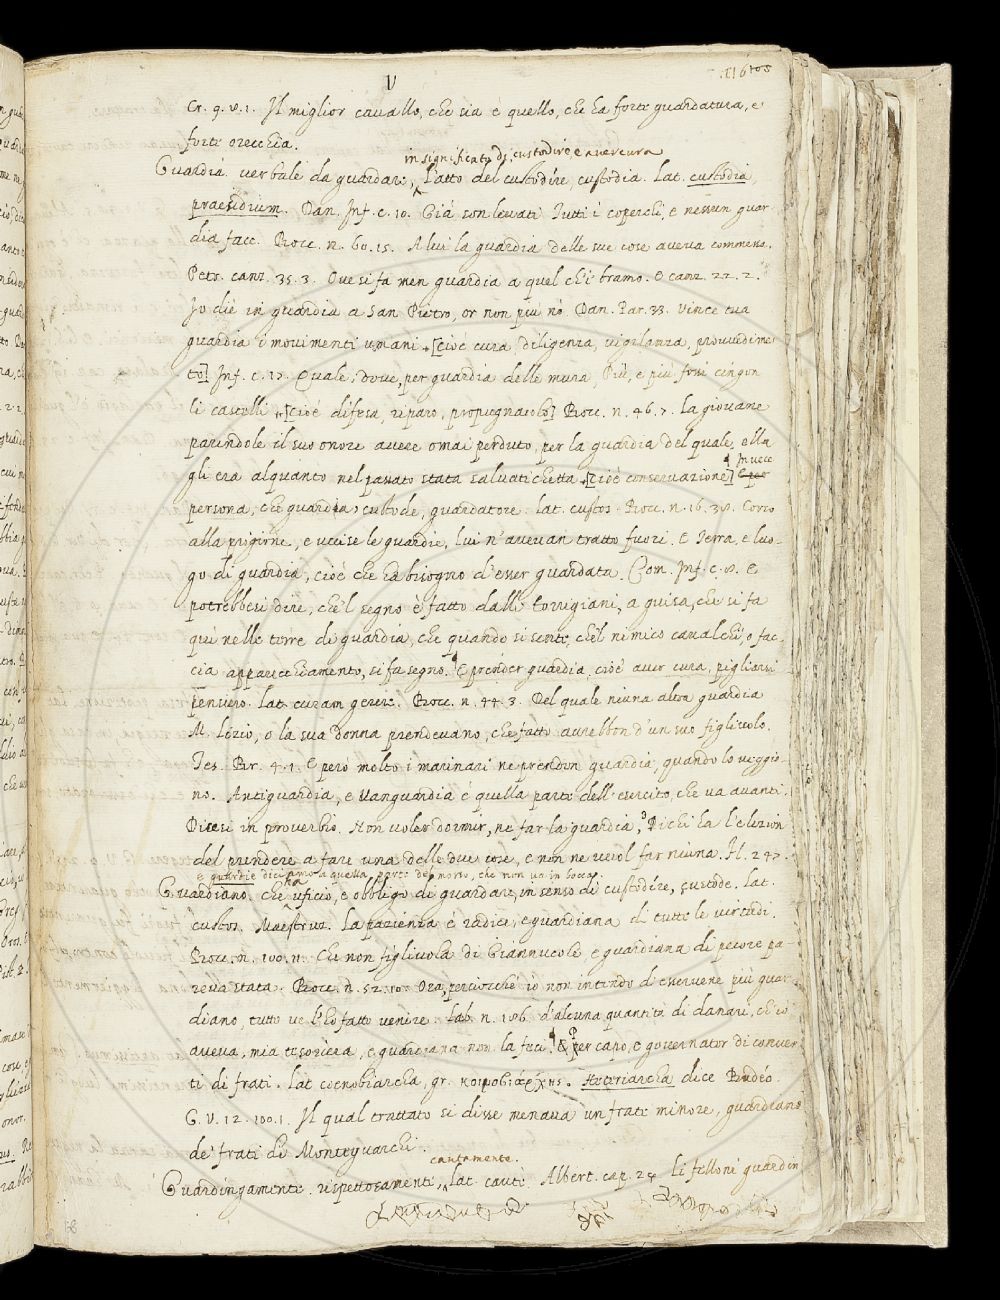 V
116 tos
Cr. 9. v. 1. Il miglior cavallo, che sia è quello, che ha forte guardatura, e
forte orecchia.
in significato di custodire, e aver cura
Guardia. verbale da guardare, l'atto del custodire, custodia. Lat. custodia,
praesidium. Dan. Inf. c. 10. Già son levati Tutti i coperchi, e nessun guar
dia face. Bocc. n. 60. 15. A lui la guardia delle sue cose aveva commessa.
Petr. canz. 35. 3. Ove si fa men guardia a quel ch'i bramo. E canz. 22. 2.
Io diè in guardia a San Pietro, or non più nò Dan. Par. 33. Vince tua
guardia i movimenti umani [cioè cura, diligenza, vigilanza, provvedime
to] Inf. c. 17. Quale, dove, per guardia delle mura, Più, e più fossi cingon
li castelli [cioè difesa, riparo, propugnacolo] Bocc. n. 46. 7. La giovane
parendole il suo onore avere omai perduto, per la guardia del quale, ella
gli era alquanto nel passato stata salvatichetta [cioè conservazione] E per
In vece
persona, che guardia, custode, guardatore. Lat. custos. Bocc. n. 16. 38. Corro
alla prigione, e uccise le guardie, lui n'avevan tratto fuori. E Terra, e luo-
go di guardia, cioè che ha bisogno d'esser guardata. Com. Inf. c. 8. E
potrebbesi dire, che'l segno è fatto dalli torrigiani, a guisa, che si fa
qui nelle terre di guardia, che quando si sente, che'l nimico cavalchi, o fac-
cia apparecchiamento, si fa segno. E prender guardia, cioè aver cura, pigliarsi
pensiero. Lat. curam gerere. Bocc. n. 44. 3. Del quale niuna altra guardia
M. Lizio, o la sua donna prendevano, che fatto avrebbon d'un suo figliuolo.
Tes. Br. 4. 1. E però molto i marinari ne prendon guardia, quando lo veggio-
no. Antiguardia, e Vanguardia è quella parte dell'esercito, che va avanti.
Dicesi in proverbio. Non voler dormir, ne far la guardia, Di chi ha l'elezion
del prendere a fare una delle due cose, e non ne vuol far niuna. Fl. 247.
e guardie diciamo a quella parte del morso, che non va in bocca.
Guardiano. che ha uficio, e obbligo di guardare, in senso di custodire, custode. Lat.
custos. Maestruz. La pazienza è radice, e guardiana di tutte le virtudi.
Bocc. n. 100. 11. Cu non figliuola di Giannucole e guardiana di pecore pa-
reva stata. Bocc. n. 52. 10. Ora, perciocchè io non intendo d'esservene più guar-
diano, tutto ve l'ho fatto venire. Lab. n. 186. d'alcuna quantità di danari, ch'io
aveva, mia tesoriera, e guardiana non la feci. E per capo, e governator di conven
ti di frati. Lat coenobiarcha, gr. κοινοβιάρχης. Haeteriarcha dice Budéo.
G. V. 12. 100. 1. Il qual trattato si disse menava un frate minore, guardiano
de' frati di Montevarchi.
cautamente.
Guardingamente. rispettosamente, Lat. cautè. Albert. cap. 24. Li felloni guardin